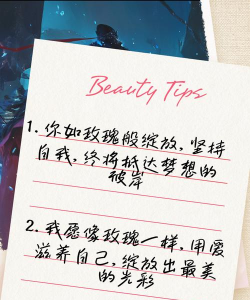 Beauty Tips
1. 你如玫瑰般绽放，坚持
自我，终将抵达梦想的
彼岸
2. 我愿像玫瑰一样，用爱
滋养自己，绽放出最美
的光彩